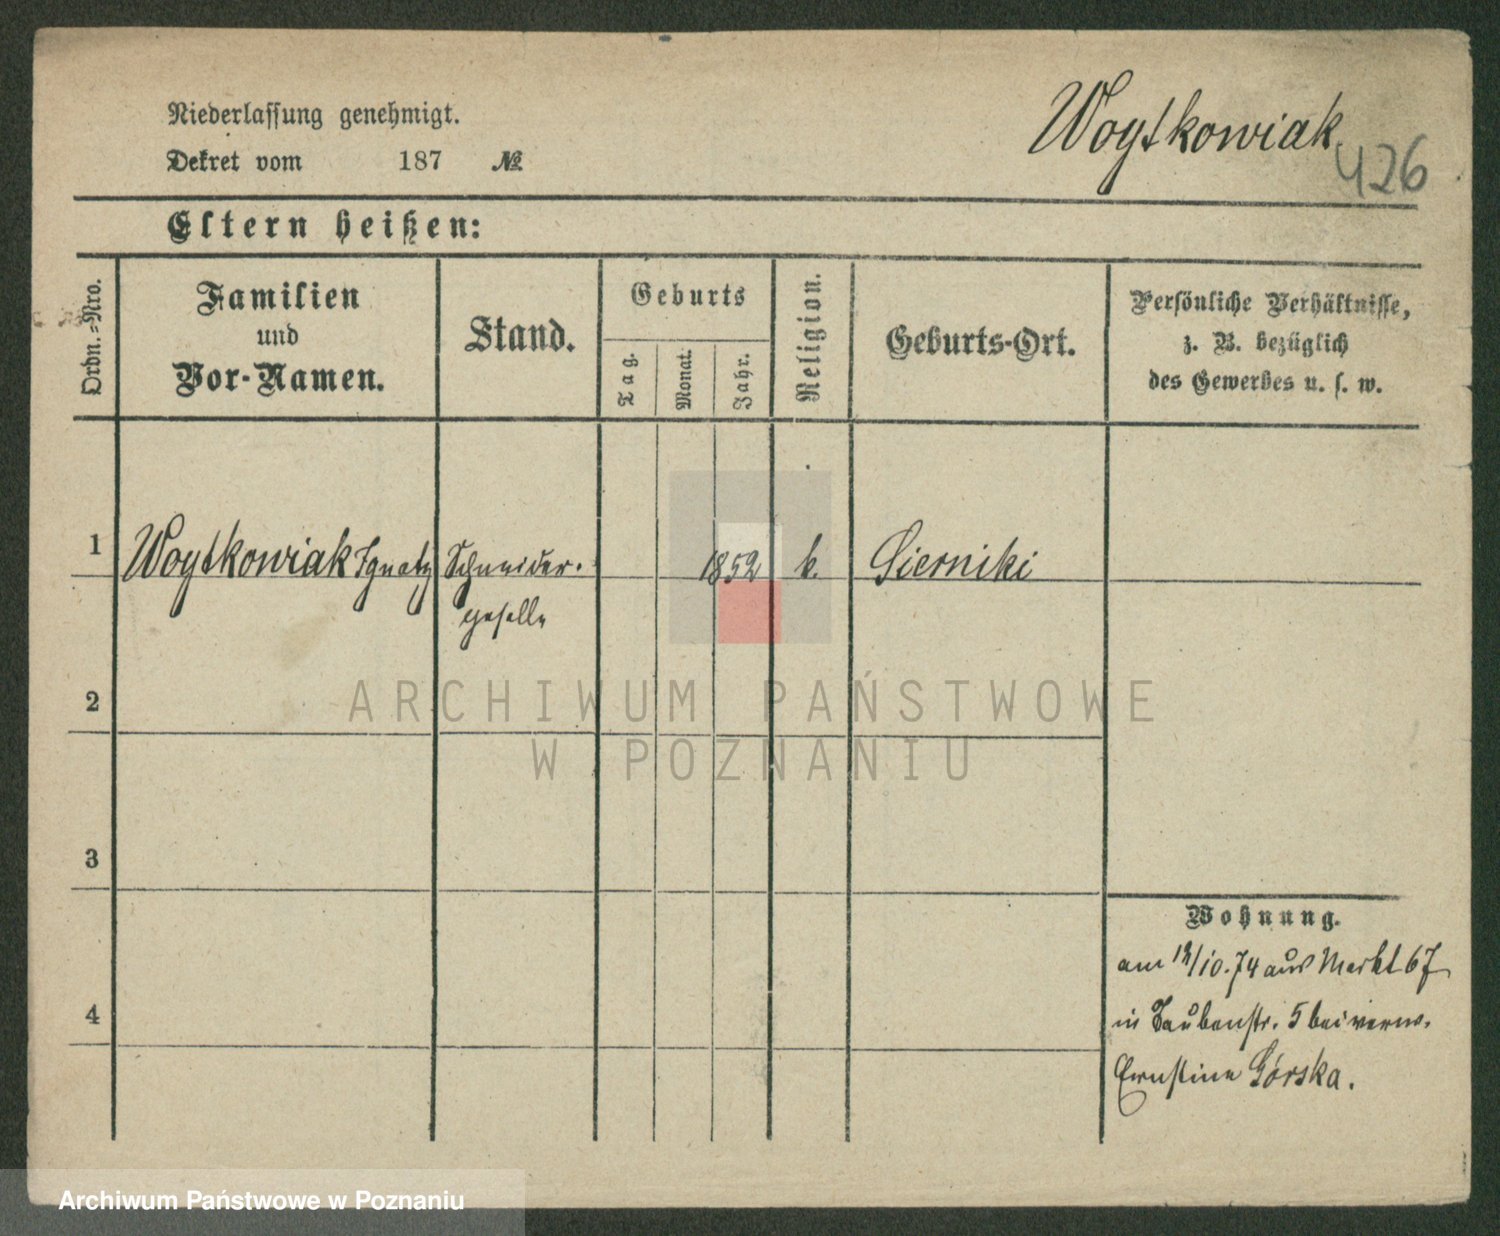 Niederlassung genehmigt.
Dekret vom 187 №
Woytkowiak
426
Eltern heißen:
Ordn.-Nro.
Familien
und
Vor-Namen.
Stand.
Geburts
Tag.
Monat.
Jahr.
Religion.
Geburts-Ort.
Persönliche Verhältnisse,
z. B. bezüglich
des Gewerbes u. s. w.
1 Woytkowiak Ignatz Schneider- 1852 k. Sierniki
geselle
2
3
4
Wohnung.
am /10.74 aus Markt 67
in Taubenstr. 5 bei verw.
Ernstine Górska.
ARCHIWUM PAŃSTWOWE
W POZNANIU
Archiwum Państwowe w Poznaniu